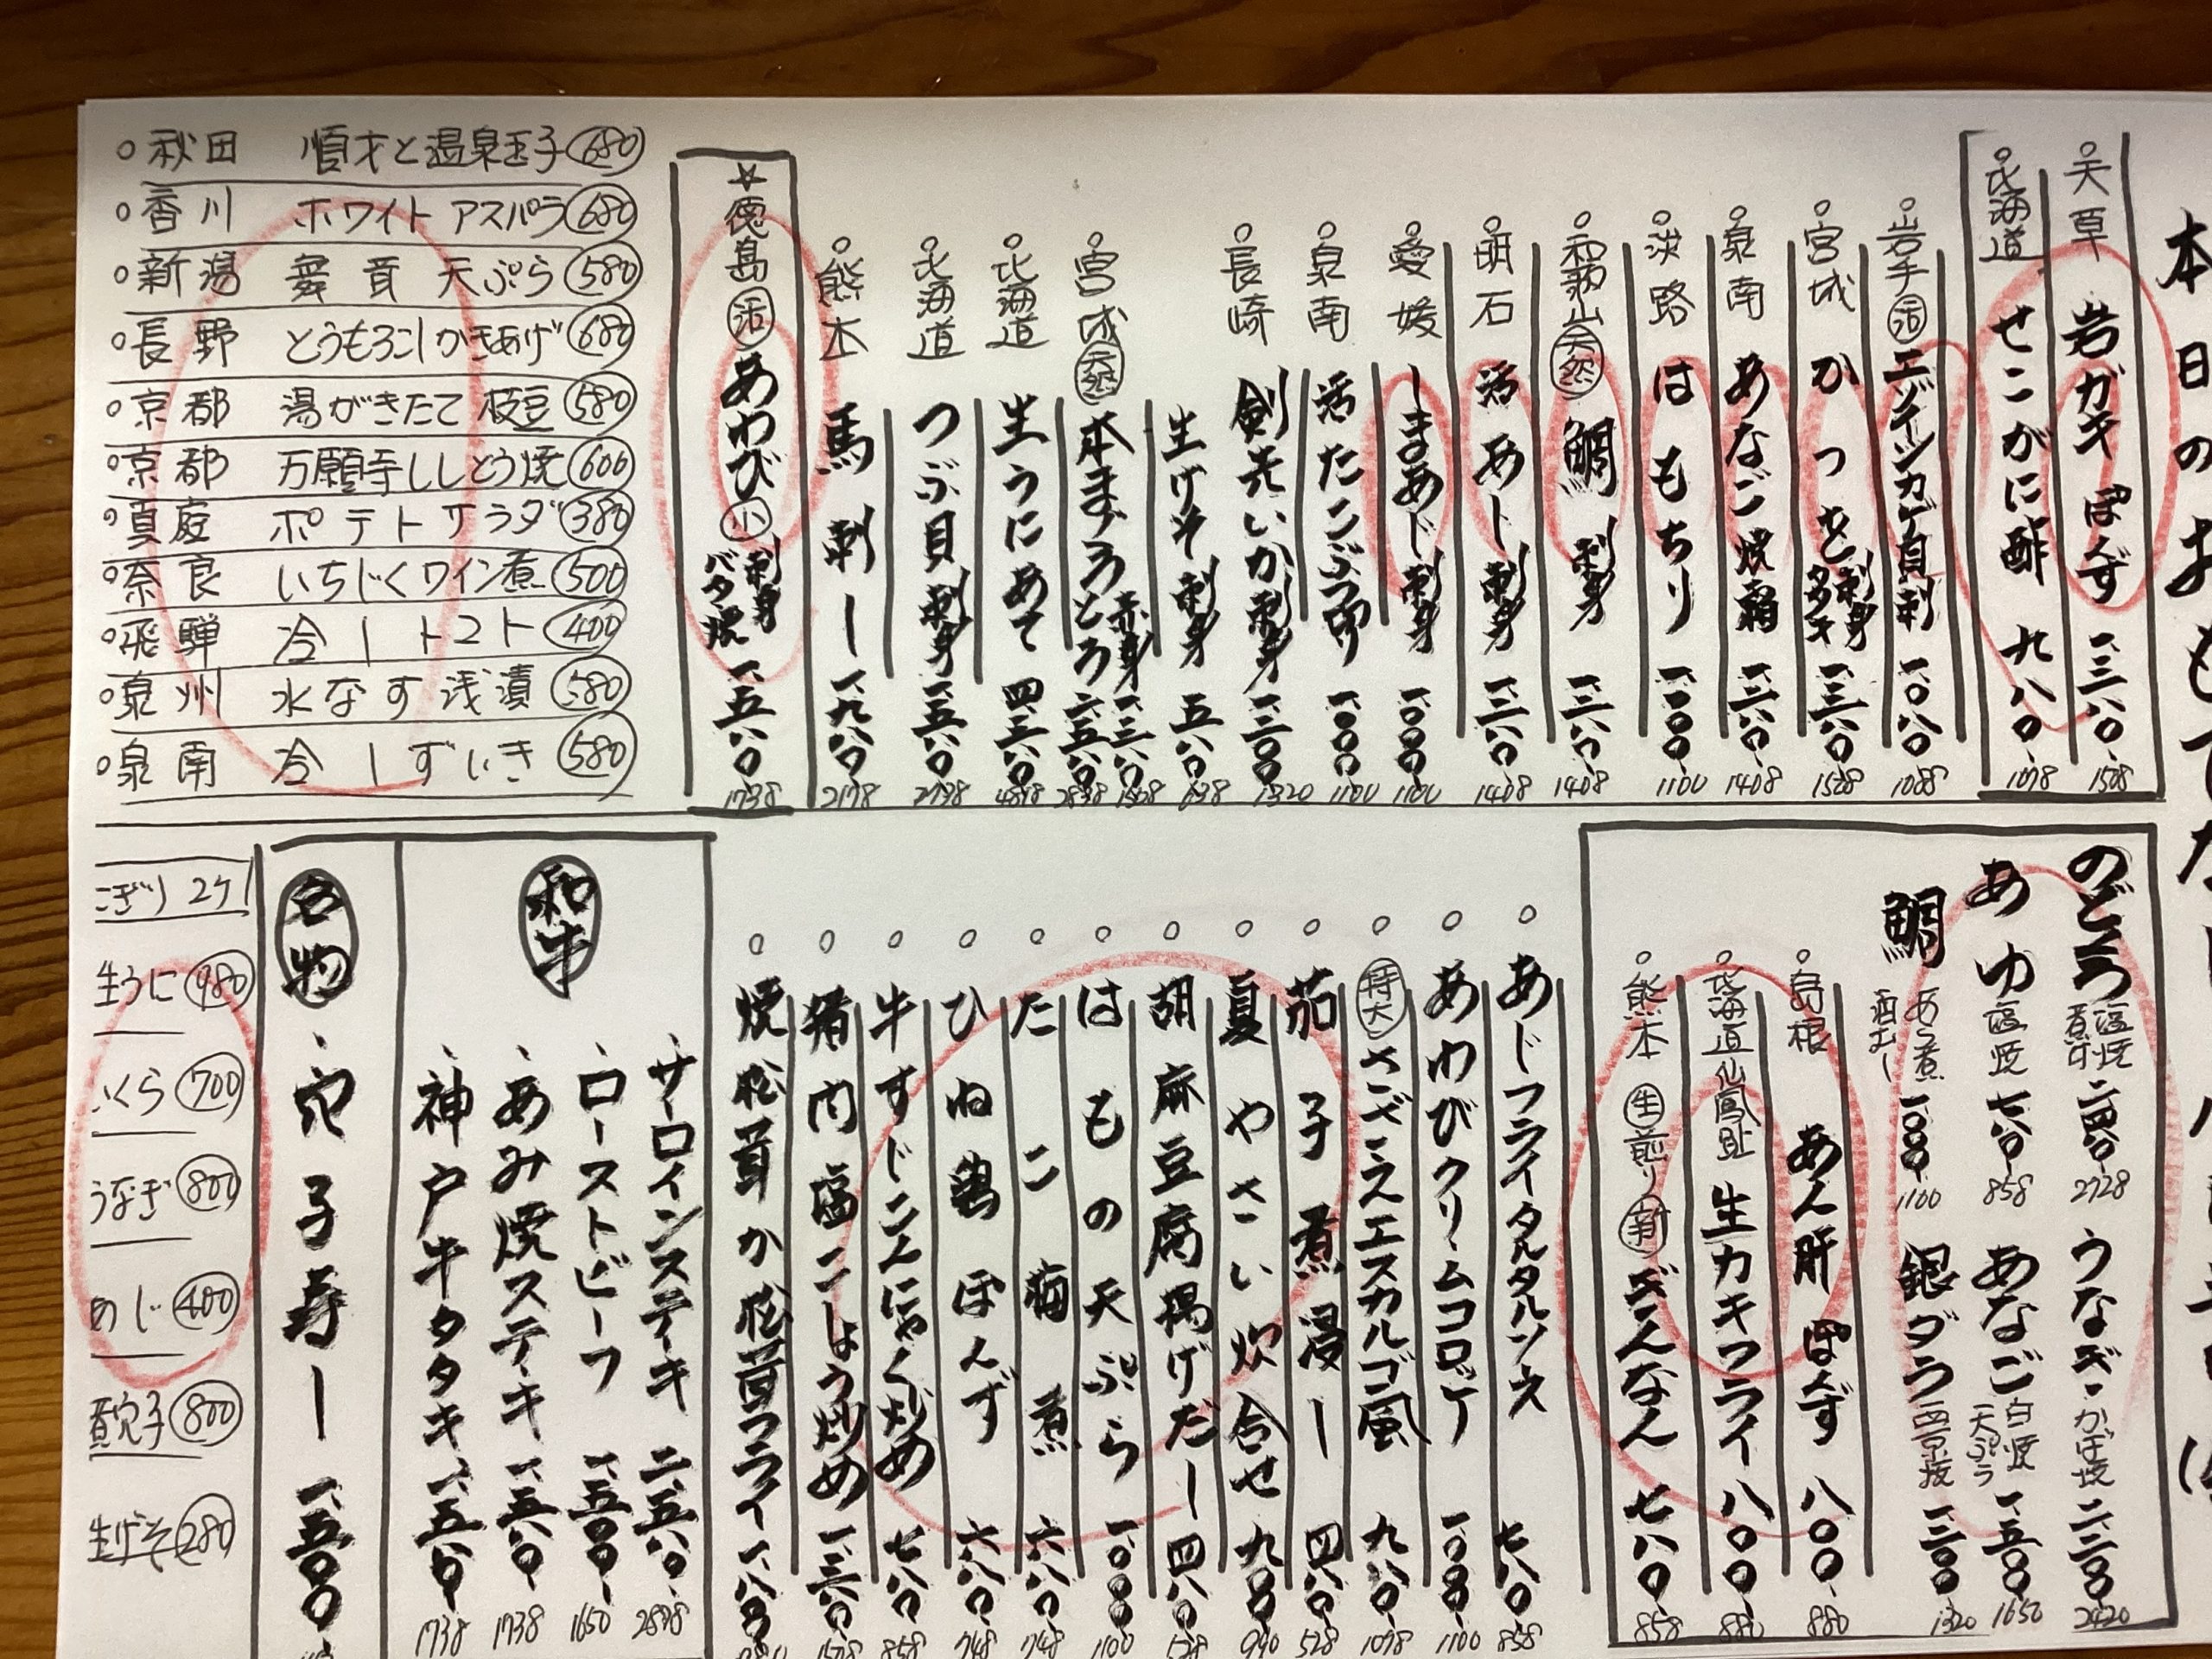 本日のおもてなし
天草 岩ガキ ぽんず 一、三八〇 1508
北海道 せこがに酢 九八〇 1078
岩手 活 エゾインカゲ貝刺 一、〇八〇 1088
宮城 かつを 刺身 タタキ 一、三八〇 1528
泉南 あなご焼霜 一、三八〇 1408
淡路 はもちり 一、〇〇〇 1100
和歌山 天然 鯛 刺身 一、三八〇 1408
明石 活あじ 刺身 一、三八〇 1408
愛媛 しまあじ 刺身 一、〇〇〇 1100
泉南 活たこぶつ切り 一、〇〇〇 1100
長崎 剣先いか 刺身 一、二〇〇 1320
生げそ 刺身 五八〇 638
宮城 天然 本まぐろ 赤身 一、三八〇 1528 とろ 二、五八〇 2838
北海道 生うにあて 四、三八〇 4818
北海道 つぶ貝 刺身 一、五八〇 2738
熊本 馬刺し 一、九八〇 2178
☆徳島 活 あわび 小 刺身 バタ焼 一、五八〇 1738
○秋田 順才と温泉玉子 680
○香川 ホワイトアスパラ 680
○新潟 舞茸天ぷら 580
○長野 とうもろこしかきあげ 680
○京都 湯がきたて枝豆 580
○京都 万願寺ししとう焼 600
○真庭 ポテトサラダ 380
○奈良 いちじくワイン煮 500
○飛騨 冷しトマト 400
○泉州 水なす浅漬 580
○泉南 冷しずいき 580
のどぐろ 塩焼 煮付 二、四八〇 2728 うなぎ かば焼 二、二〇〇 2420
あゆ 塩焼 七八〇 858 あなご 白焼 天ぷら 一、五〇〇 1650
鯛 あら煮 酒むし 一、〇〇〇 1100 銀ダラ 西京焼 一、二〇〇 1320
島根 あん肝ぽんず 八〇〇 880
北海道仙鳳趾 生カキフライ 八〇〇 880
熊本 生 煎り 新 ぎんなん 七八〇 858
あじフライタルタルソース 七八〇 858
あわびクリームコロッケ 一、〇〇〇 1100
特大 さざえエスカルゴ風 九八〇 1078
茄子煮浸し 四八〇 528
夏やさい炊合せ 九〇〇 990
胡麻豆腐揚げだし 四八〇 528
はもの天ぷら 一、〇〇〇 1100
たこ梅煮 六八〇 748
ひね鶏ぽんず 六八〇 748
牛すじこんにゃく炒め 七八〇 858
猪肉塩こしょう炒め 一、三八〇 1508
焼松茸か松茸フライ 一、八〇〇
和牛
サーロインステーキ 二、五八〇 2838
ローストビーフ 一、五〇〇 1650
あみ焼ステーキ 一、五八〇 1738
神戸牛タタキ 一、五八〇 1738
名物
穴子寿し 一、五〇〇
にぎり 2ケ
生うに 980
いくら 700
うなぎ 800
あじ 400
煮穴子 800
生げそ 280